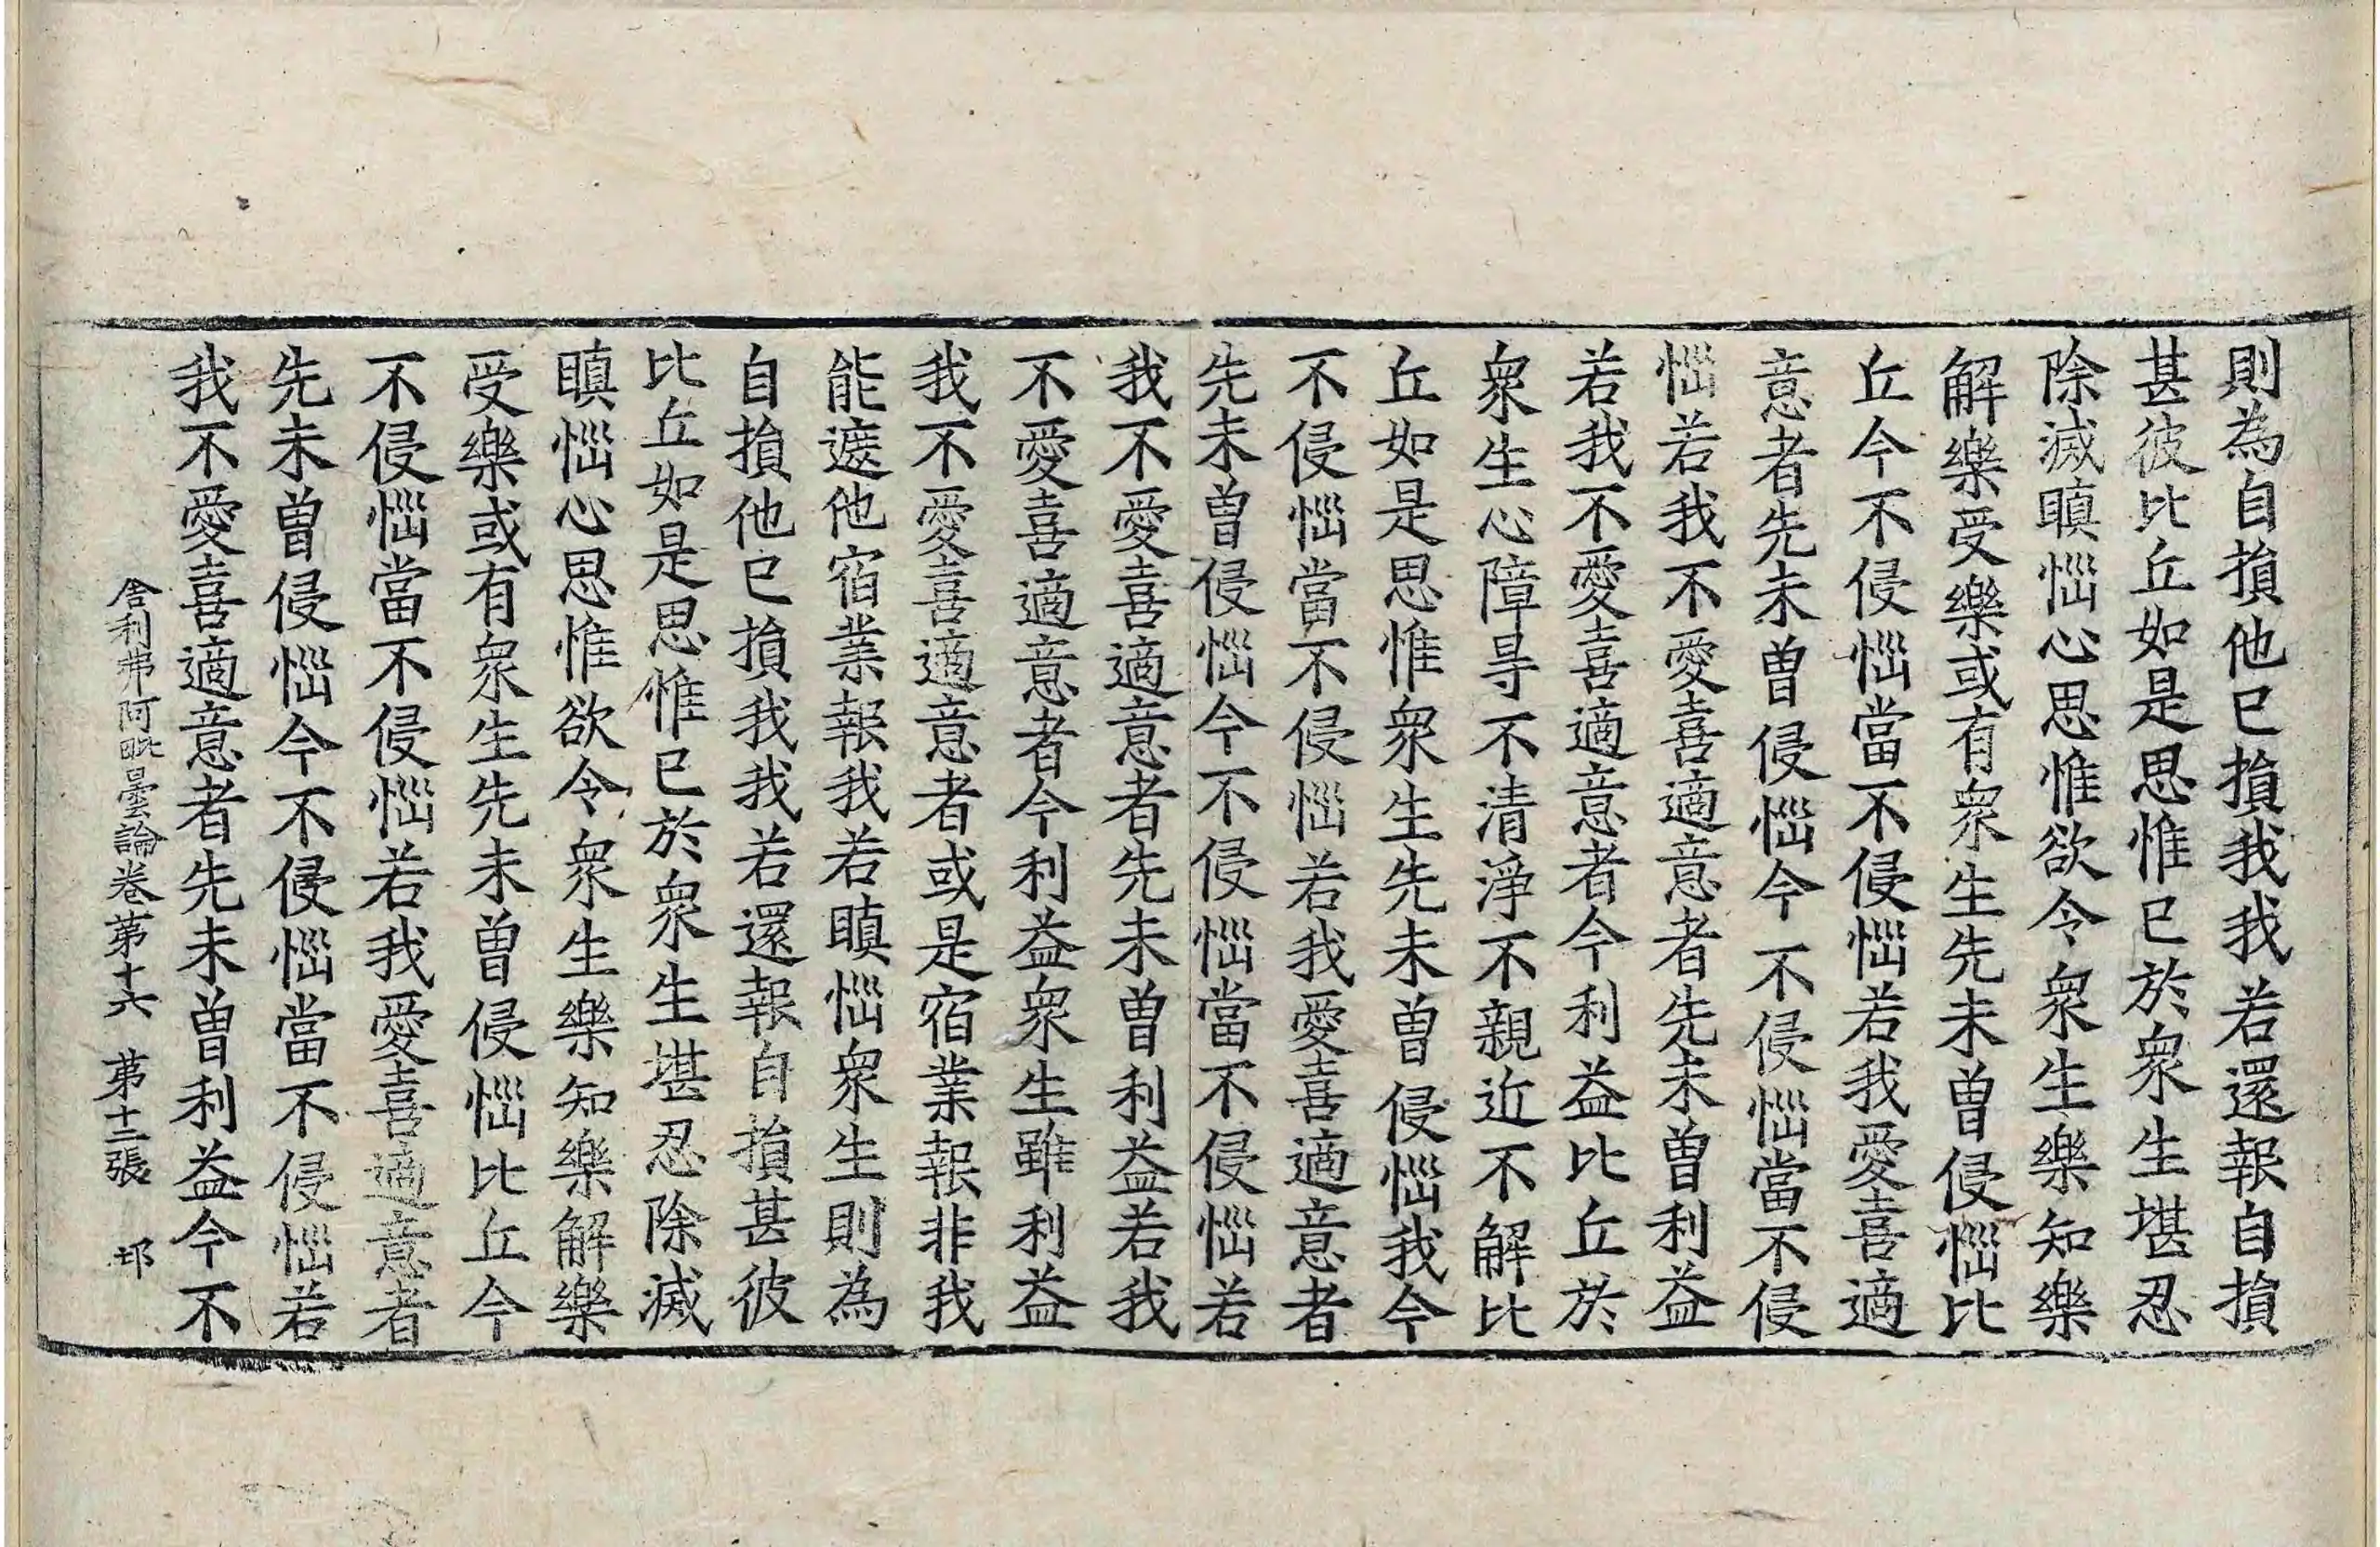 則為自損他已損我我若還報自損
甚彼比丘如是思惟已於衆生堪忍
除滅瞋惱心思惟欲令衆生樂知樂
解樂受樂或有衆生先未曽侵惱比
丘今不侵惱當不侵惱若我愛喜適
意者先未曽侵惱今不侵惱當不侵
惱若我不愛喜適意者先未曽利益
若我不愛喜適意者今利益比丘於
衆生心障㝵不清淨不親近不解比
丘如是思惟衆生先未曽侵惱我今
不侵惱當不侵惱若我愛喜適意者
先未曽侵惱今不侵惱當不侵惱若
我不愛喜適意者先未曽利益若我
不愛喜適意者今利益衆生雖利益
我不愛喜適意者或是宿業報非我
能遮他宿業報我若瞋惱衆生則為
自損他已損我我若還報自損甚彼
比丘如是思惟已於衆生堪忍除滅
瞋惱心思惟欲令衆生樂知樂解樂
受樂或有衆生先未曽侵惱比丘今
不侵惱當不侵惱若我愛喜適意者
先未曽侵惱今不侵惱當不侵惱若
我不愛喜適意者先未曽利益今不
舍利弗阿毗曇論卷第十六　第十二張　邙